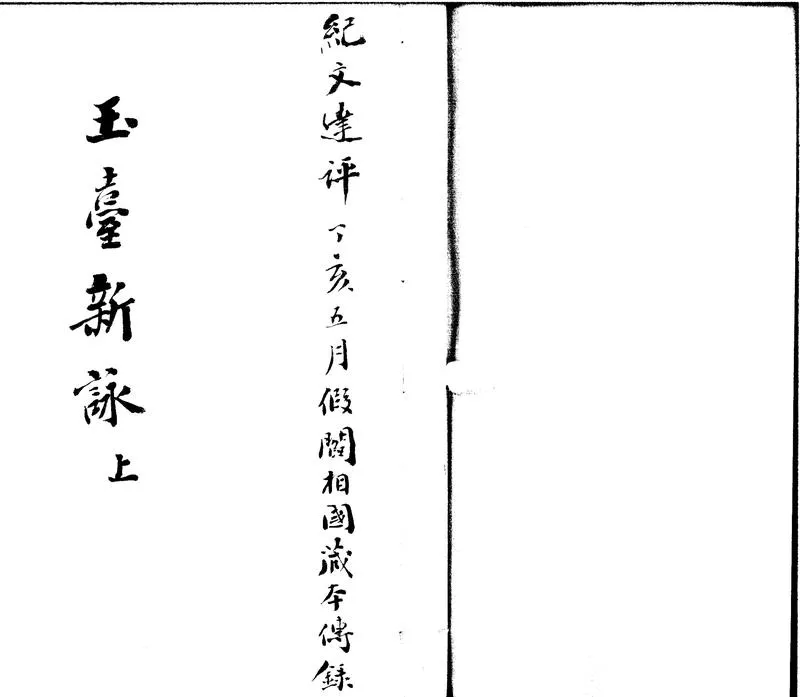 紀文達評丁亥五月假閻相國藏本傳錄
玉臺新詠上